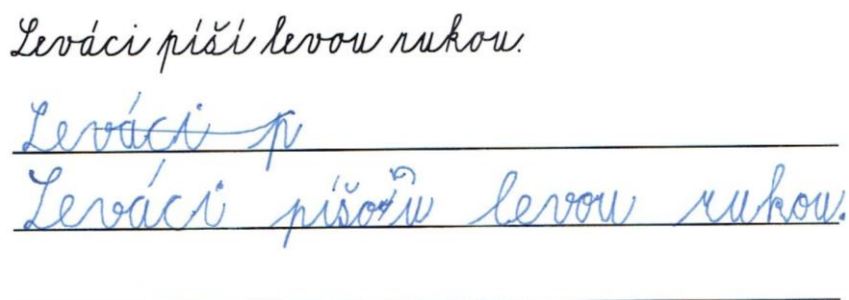 Leváci píší levou rukou.
Leváci p
Leváci levou rukou.